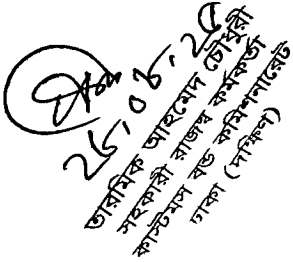 ২৮.০৮.২৫
তারমিক আহমেদ চৌধুরী
সহকারী রাজস্ব কর্মকর্তা
কাস্টমস বন্ড কমিশনারেট
ঢাকা (দক্ষিণ)